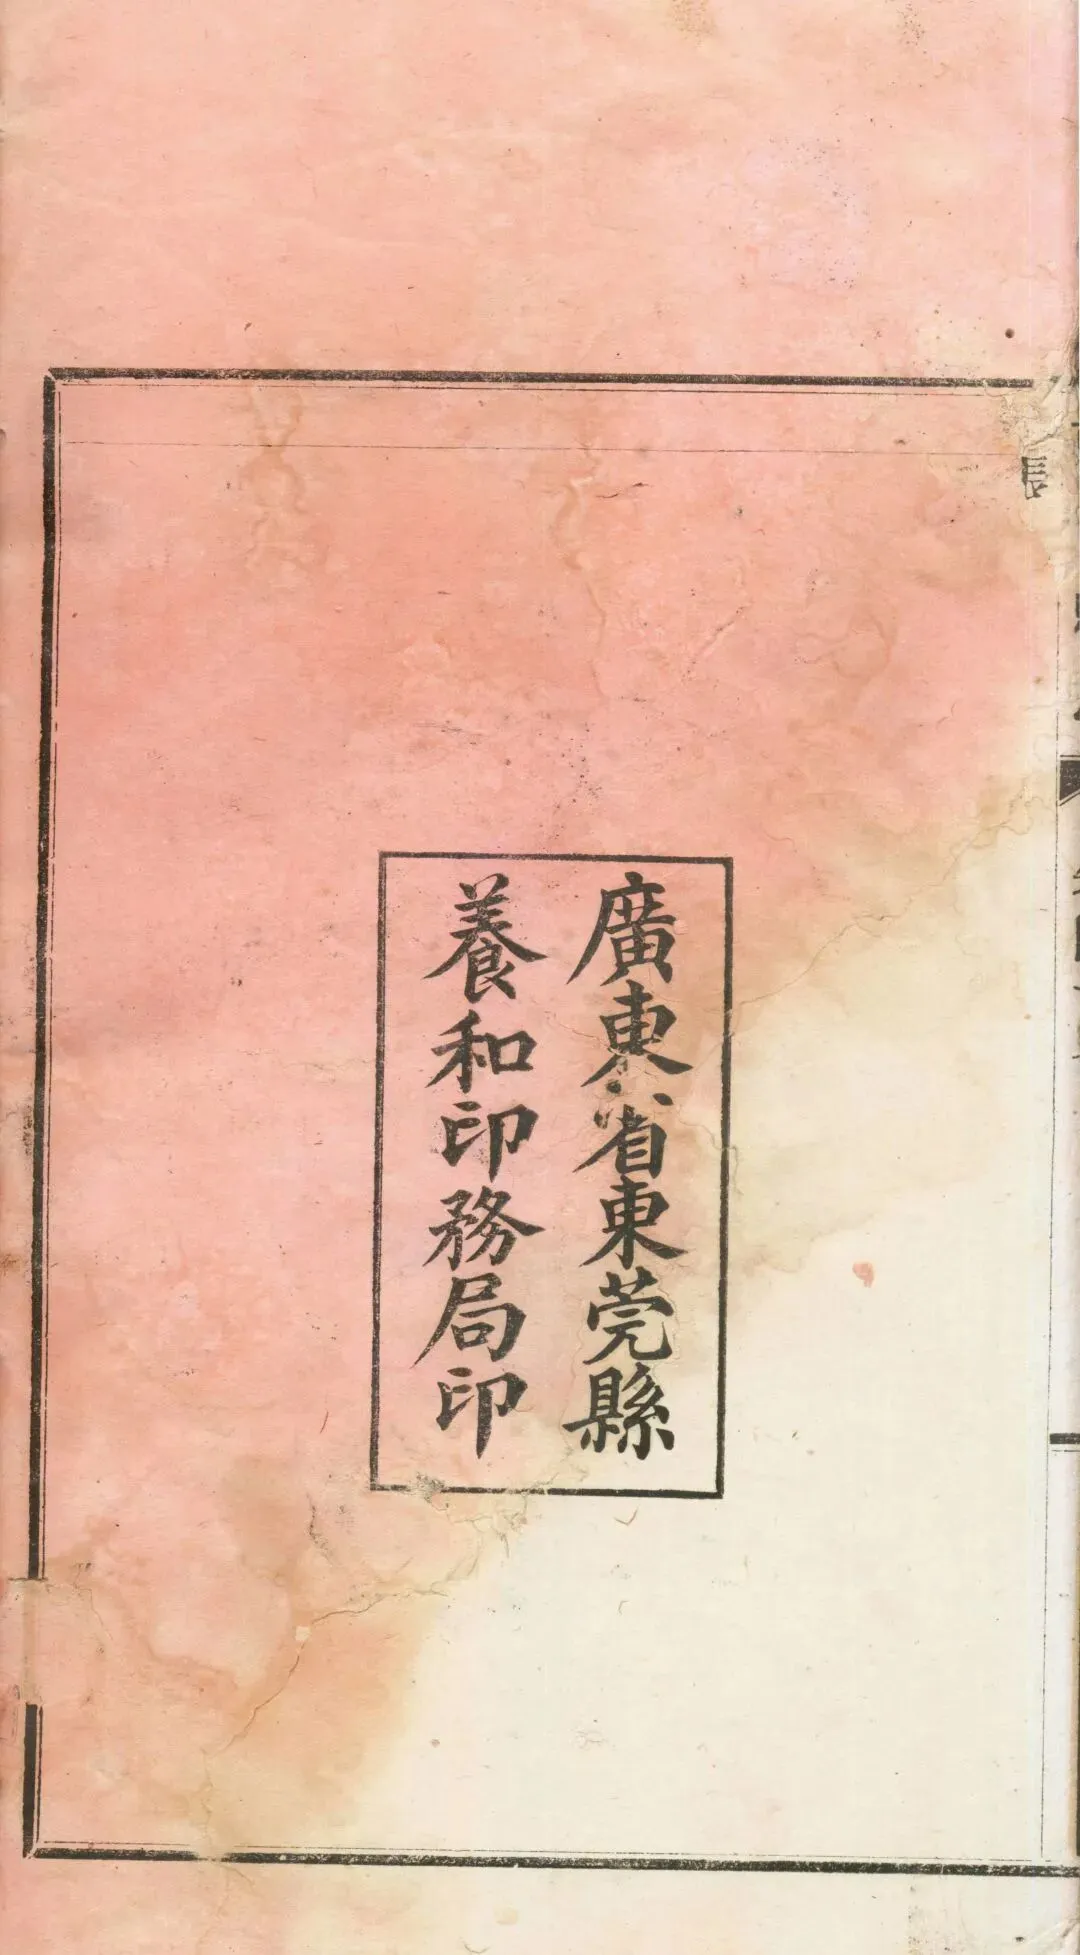 廣東省東莞縣
養和印務局印